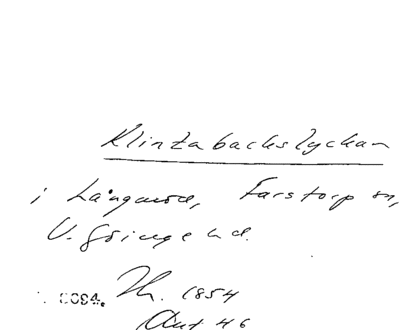 Klintabackslyckan
i Långaröd, Farstorp sn,
V. Göinge hd.
0094. Th. 1854
Akt 46